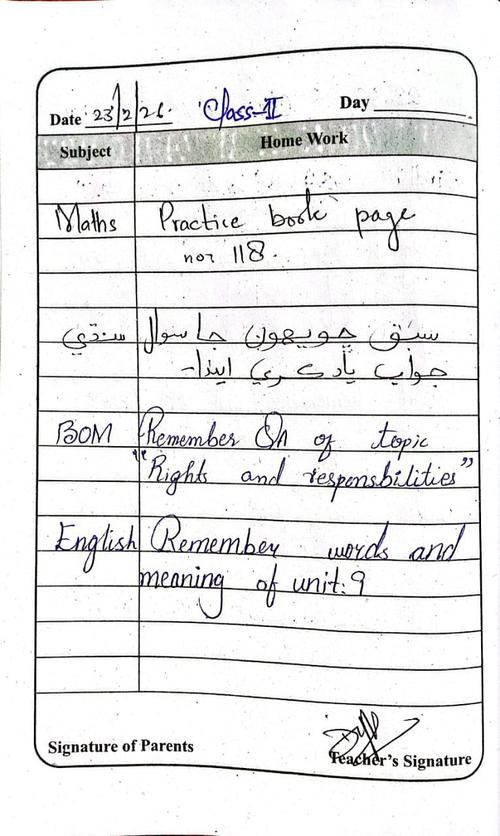 Date 23/2/26. Class-II Day
Subject Home Work
Maths Practice book page
no: 118.
سنڌي سبق چويھون جا سوال
جواب ياد ڪري ايندا۔
BOM Remember Qn of topic
"Rights and responsbilities"
English Remember words and
meaning of unit:9
Signature of Parents Teacher's Signature